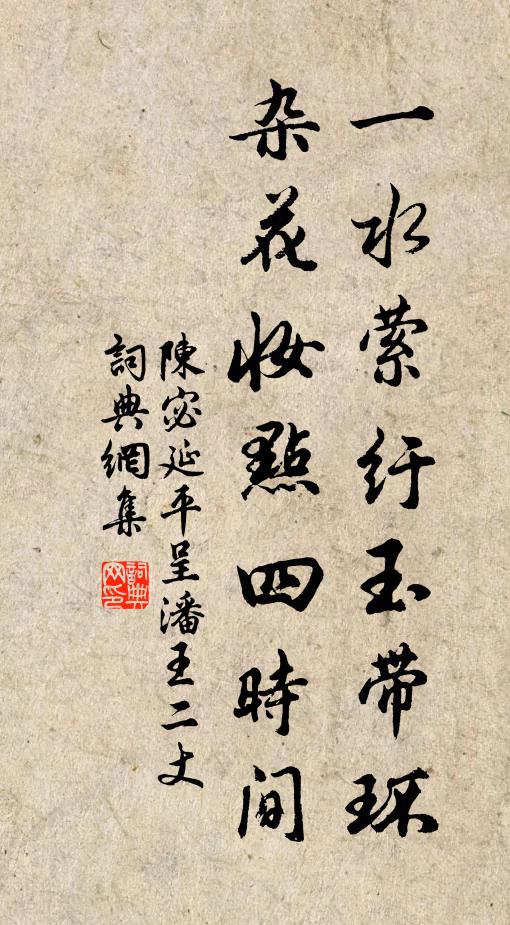 一水萦纡玉带环
杂花妆點四時间
陳宓延平呈潘王二丈
詞典網集
詞典网印